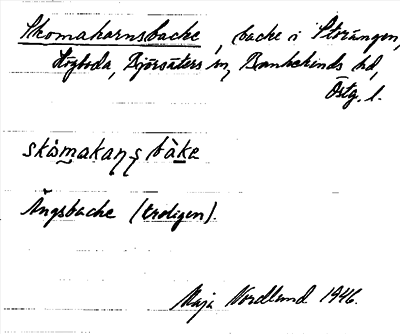 Skomakarnsbacke, backe i Storängen,
Högboda, Björsäters sn, Bankekinds hd,
Östg. l.
skòmakaṇṣ bàke
Ängsbacke (troligen).
Maja Nordlund 1946.